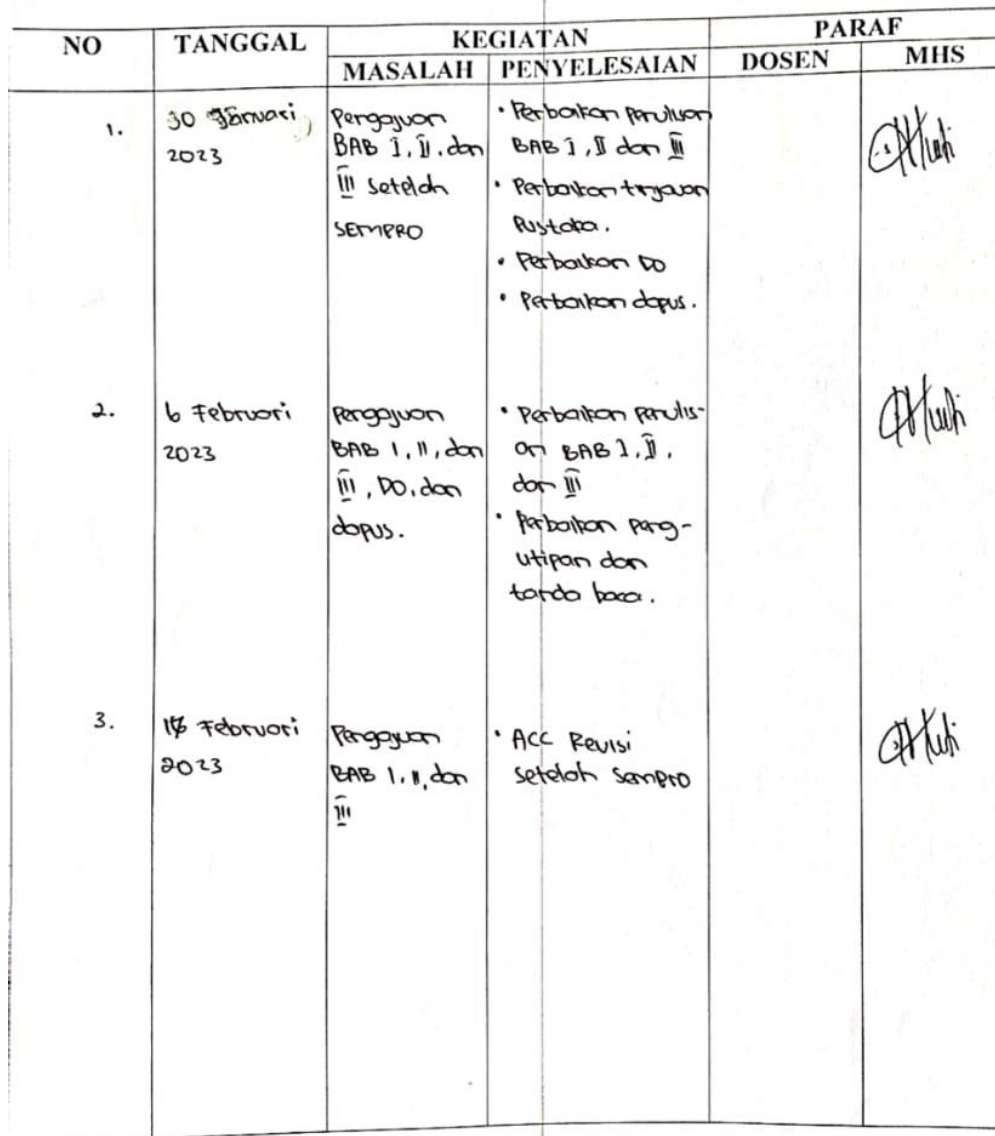 NO TANGGAL KEGIATAN PARAF
MASALAH PENYELESAIAN DOSEN MHS
1.
30 Januari
2023
Pengajuan
BAB I, II, dan
III setelah
SEMPRO
• Perbaikan penulisan
BAB I, II dan III
• Perbaikan tinjauan
Pustaka.
• Perbaikan DO
• Perbaikan dapus.
2.
6 Februari
2023
Pengajuan
BAB I, II, dan
III, DO, dan
dapus.
• Perbaikan penulis-
an BAB I, II,
dan III
• Perbaikan peng-
utipan dan
tanda baca.
3.
Februari
2023
Pengajuan
BAB I, II, dan
III
• ACC Revisi
setelah Sempro